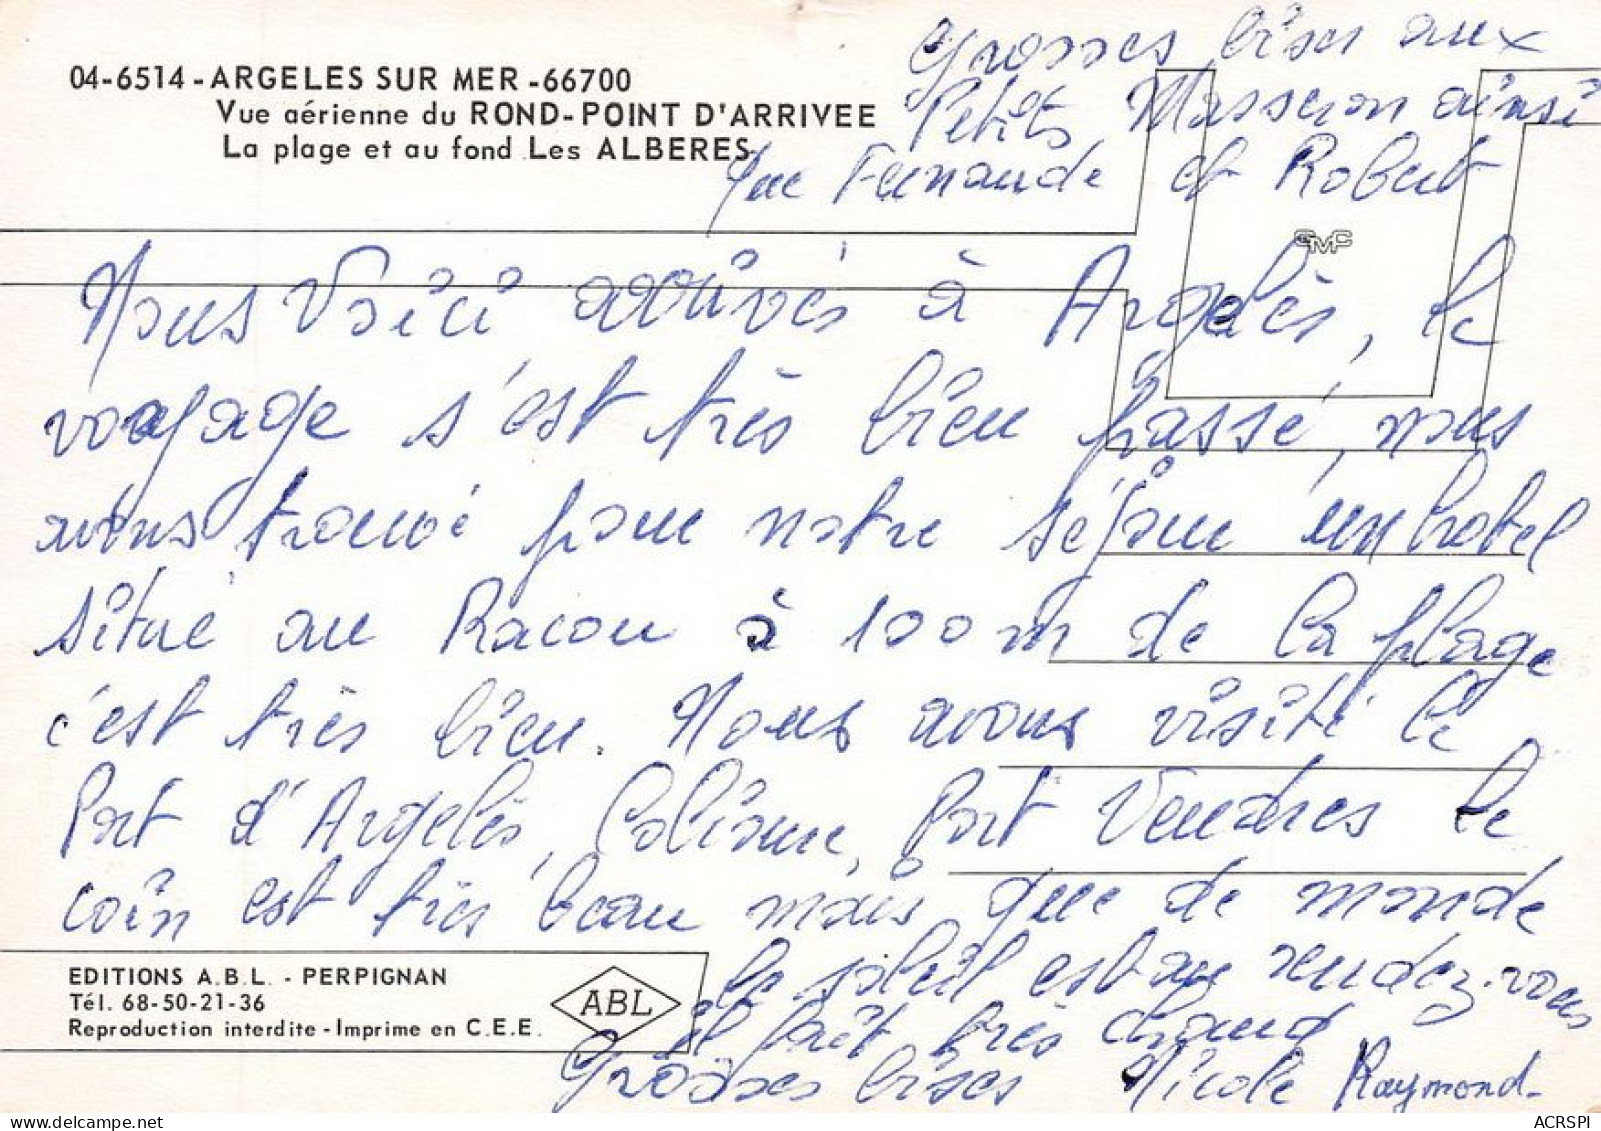 04-6514 - ARGELES SUR MER - 66700
Vue aérienne du ROND-POINT D'ARRIVEE
La plage et au fond Les ALBERES
Grosses bises aux
Petits Masseron ainsi
que Fernande et Robert
CMC
Nous voici arrivés à Argelès, le
voyage s'est très bien passé, nous
avons trouvé pour notre séjour un hotel
situé au Racou à 100m de la plage
c'est très bien. Nous avons visité le
Port d'Argelès, Colioure, Port Vendres le
coin est très beau mais que de monde
le soleil est au rendez-vous
il fait très chaud
Grosses bises Nicole Raymond-
EDITIONS A.B.L. - PERPIGNAN
Tél. 68-50-21-36
Reproduction interdite - Imprime en C.E.E.
ABL
ACRSPI